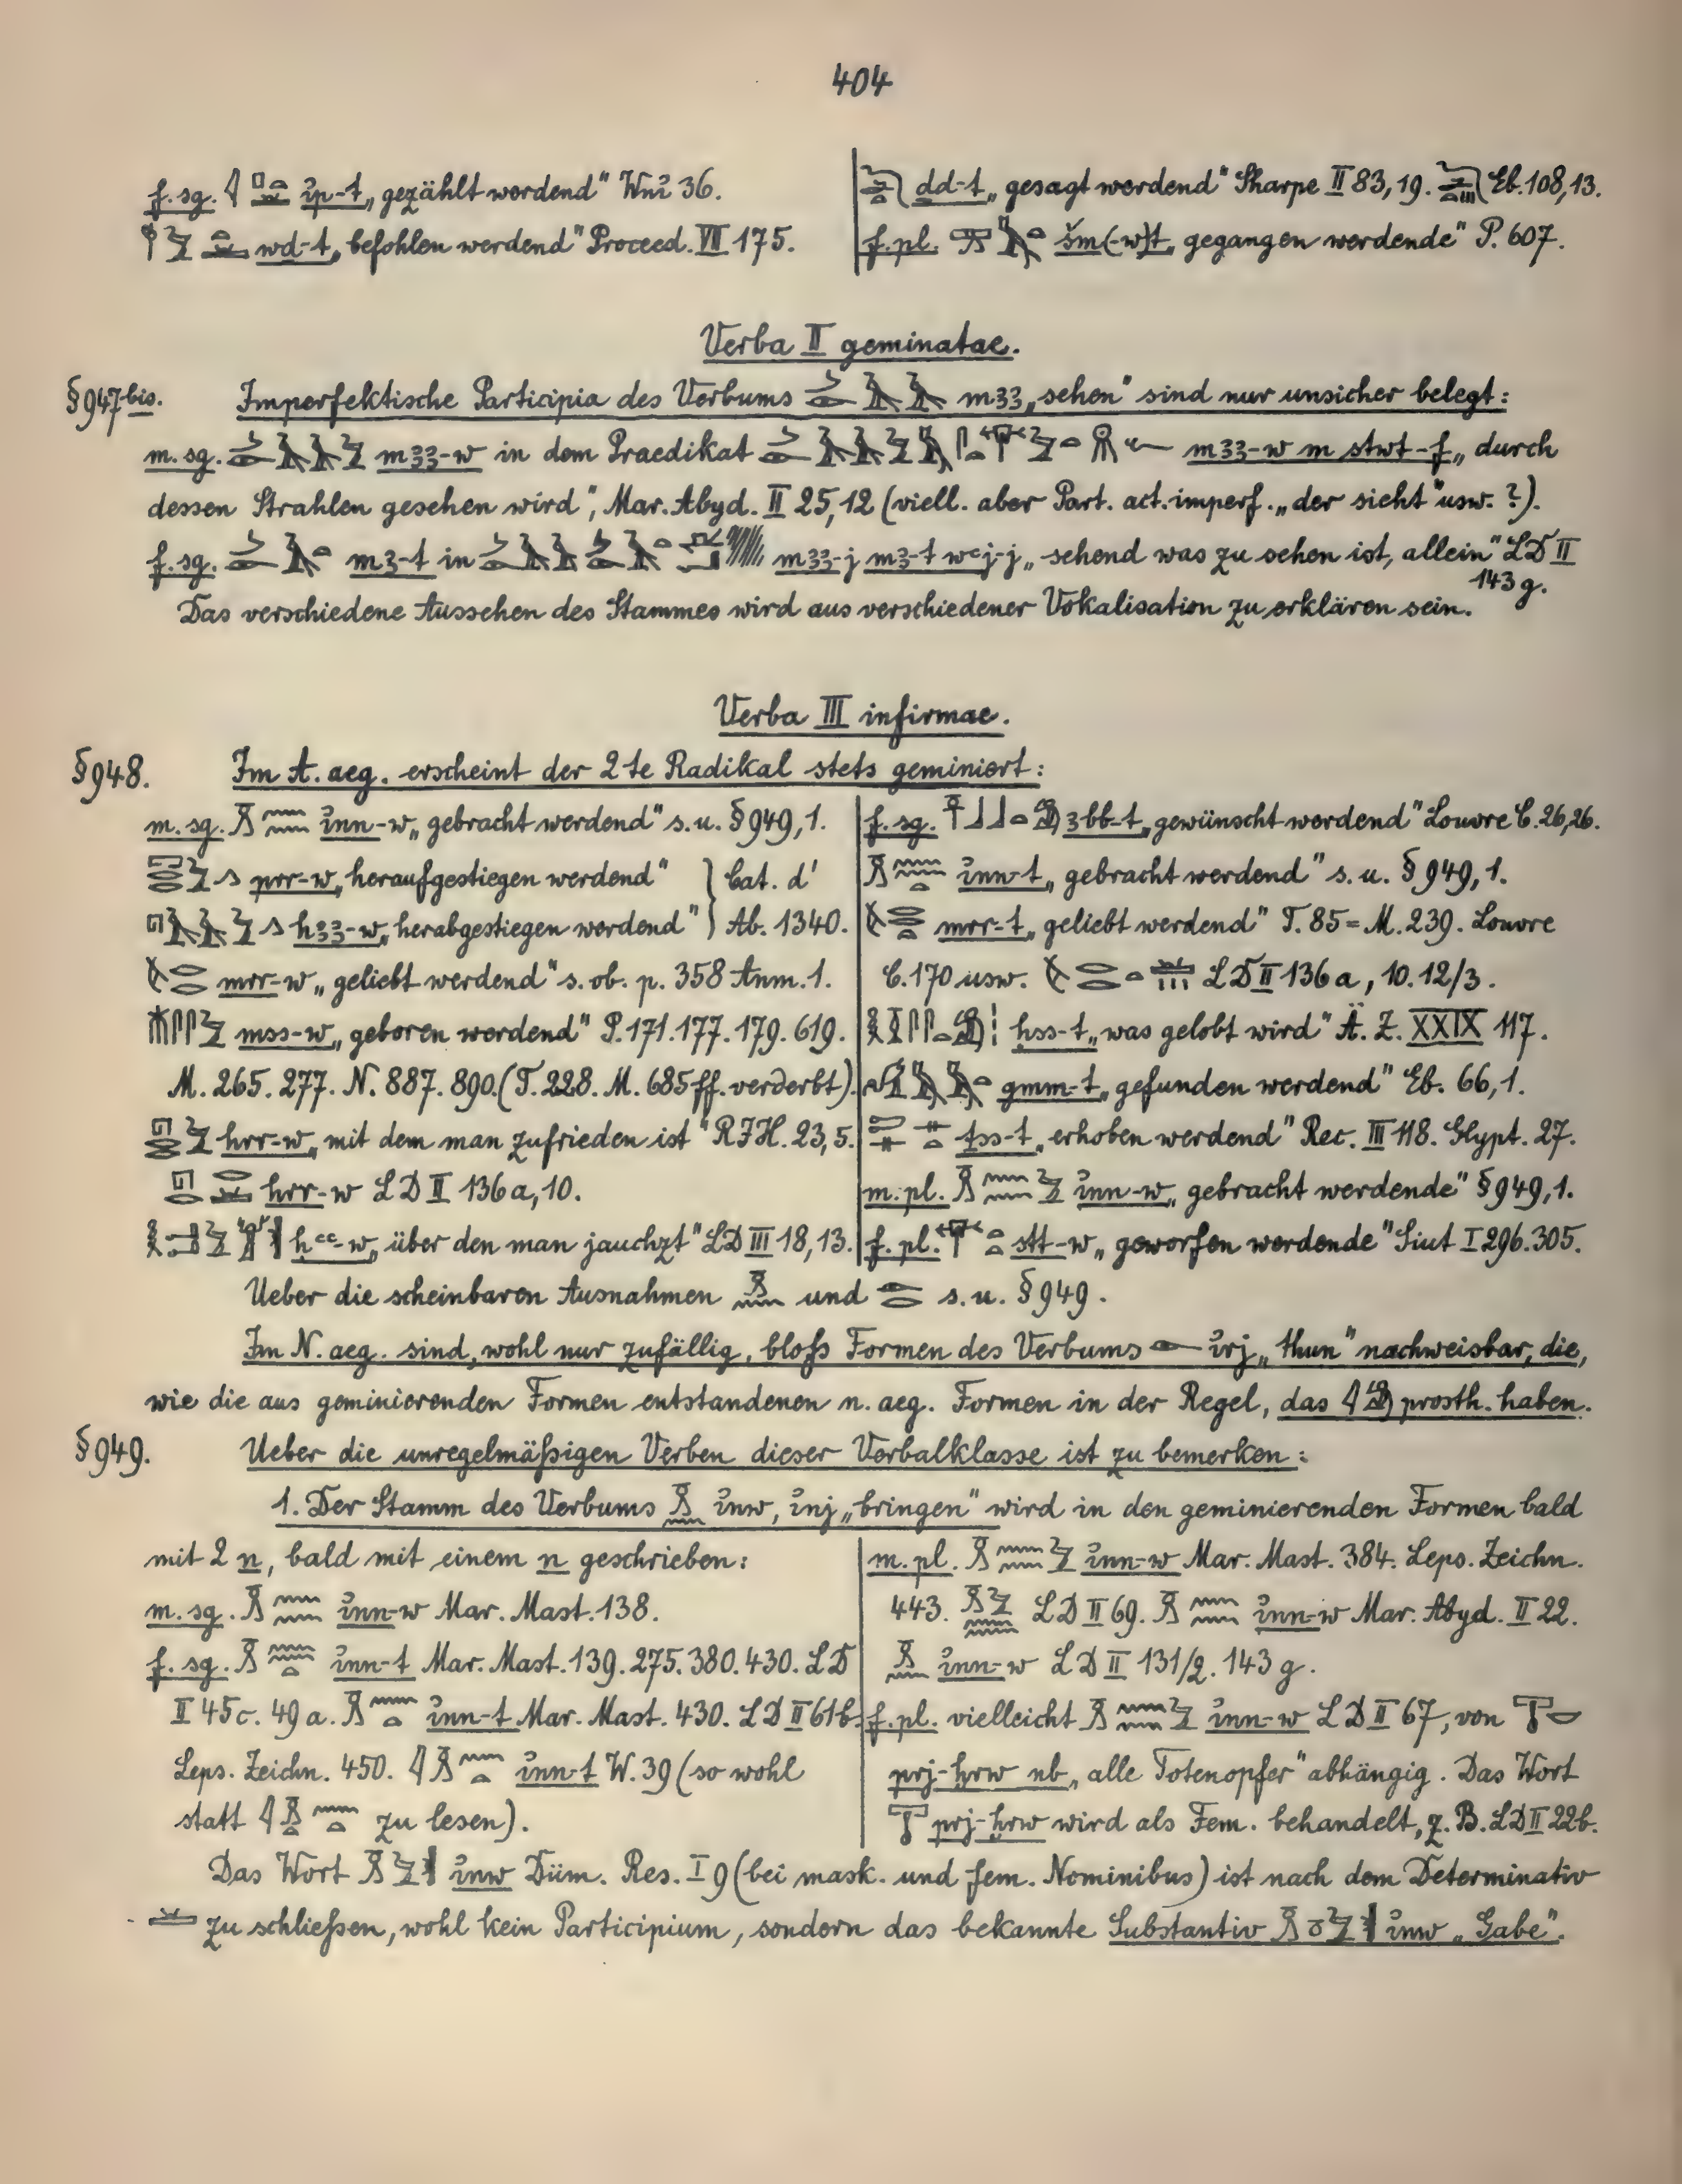 404
f. sg. ỉp-t „gezählt werdend“ Wnỉ 36.
wd-t „befohlen werdend“ Proceed. VII 175.
dd-t „gesagt werdend“ Sharpe II 83, 19. Eb. 108, 13.
f. pl. šm(-w)t „gegangen werdende“ P. 607.
Verba II geminatae.
§947bis. Imperfektische Participia des Verbums mꜣꜣ „sehen“ sind nur unsicher belegt:
m. sg. mꜣꜣ-w in dem Praedikat mꜣꜣ-w m stwt-f „durch
dessen Strahlen gesehen wird“, Mar. Abyd. II 25, 12 (viell. aber Part. act. imperf. „der sieht“ usw. ?).
f. sg. mꜣ-t in mꜣꜣ-j mꜣ-t wꜥj-j „sehend was zu sehen ist, allein“ LD II
143 g.
Das verschiedene Aussehen des Stammes wird aus verschiedener Vokalisation zu erklären sein.
Verba III infirmae.
§948. Im A. aeg. erscheint der 2te Radikal stets geminiert:
m. sg. ỉnn-w „gebracht werdend“ s. u. §949, 1.
prr-w „heraufgestiegen werdend“ } Cat. d'
hꜣꜣ-w „herabgestiegen werdend“ } Ab. 1340.
mrr-w „geliebt werdend“ s. ob. p. 358 Anm. 1.
mss-w „geboren werdend“ P. 171. 177. 179. 619.
M. 265. 277. N. 887. 890. (T. 228. M. 685 ff. verderbt).
hrr-w „mit dem man zufrieden ist“ RIH. 23, 5.
hrr-w LD II 136 a, 10.
ḥꜥꜥ-w „über den man jauchzt“ LD III 18, 13.
f. sg. ꜣbb-t „gewünscht werdend“ Louvre C. 26, 26.
ỉnn-t „gebracht werdend“ s. u. §949, 1.
mrr-t „geliebt werdend“ T. 85 = M. 239. Louvre
C. 170 usw. LD II 136 a, 10. 12/3.
ḥss-t „was gelobt wird“ Ä. Z. XXIX 117.
gmm-t „gefunden werdend“ Eb. 66, 1.
ṯss-t „erhoben werdend“ Rec. III 118. Glypt. 27.
m. pl. ỉnn-w „gebracht werdende“ §949, 1.
f. pl. stt-w „geworfen werdende“ Siut I 296. 305.
Ueber die scheinbaren Ausnahmen und s. u. §949.
Im N. aeg. sind, wohl nur zufällig, bloß Formen des Verbums ỉrj „thun“ nachweisbar, die,
wie die aus geminierenden Formen entstandenen n. aeg. Formen in der Regel, das prosth. haben.
§949. Ueber die unregelmäßigen Verben dieser Verbalklasse ist zu bemerken:
1. Der Stamm des Verbums ỉnw, ỉnj „bringen“ wird in den geminierenden Formen bald
mit 2 n, bald mit einem n geschrieben:
m. sg. ỉnn-w Mar. Mast. 138.
f. sg. ỉnn-t Mar. Mast. 139. 275. 380. 430. LD
II 45c. 49 a. ỉnn-t Mar. Mast. 430. LD II 61b.
Leps. Zeichn. 450. ỉnn-t W. 39 (so wohl
statt zu lesen).
m. pl. ỉnn-w Mar. Mast. 384. Leps. Zeichn.
443. LD II 69. ỉnn-w Mar. Abyd. II 22.
ỉnn-w LD II 131/2. 143 g.
f. pl. vielleicht ỉnn-w LD II 67, von
prj-ḫrw nb „alle Totenopfer“ abhängig. Das Wort
prj-ḫrw wird als Fem. behandelt, z. B. LD II 22b.
Das Wort ỉnw Düm. Res. I 9 (bei mask. und fem. Nominibus) ist nach dem Determinativ
zu schließen, wohl kein Participium, sondern das bekannte Substantiv ỉnw „Gabe“.